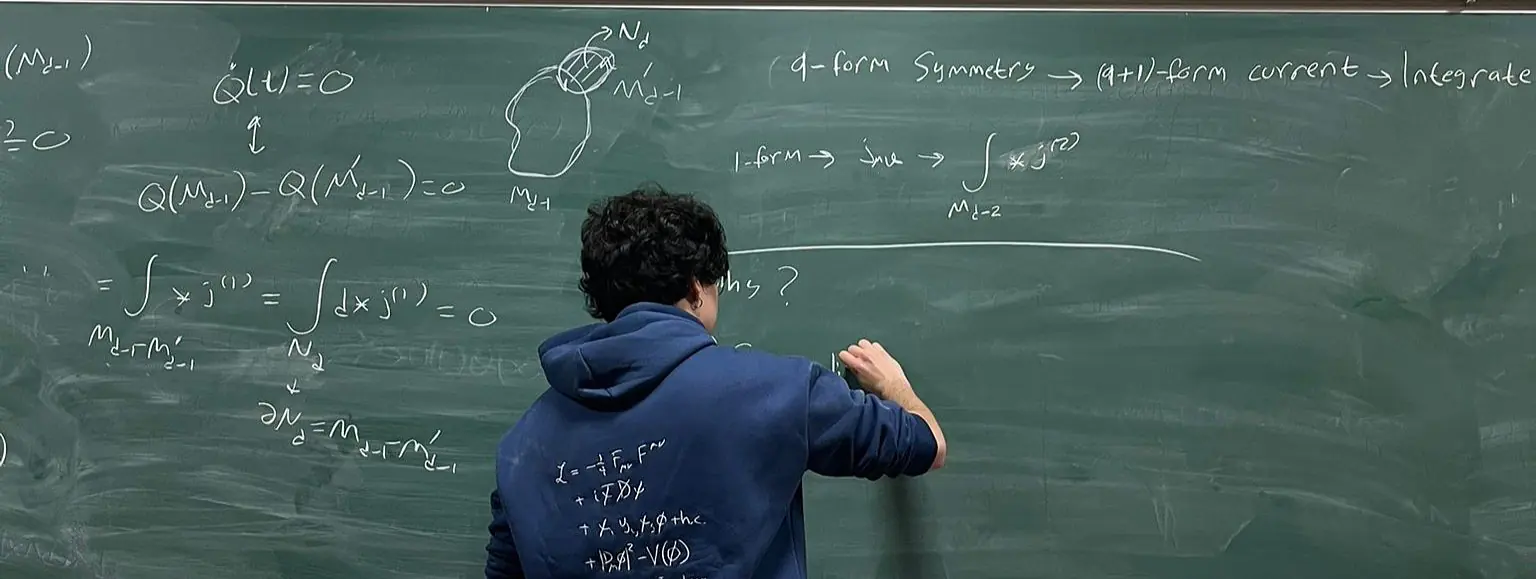 (M_{d-1})
?=0
Q̇(t)=0
↕
Q(M_{d-1})-Q(M'_{d-1})=0
=∫_{M_{d-1}-M'_{d-1}} *j^{(1)} = ∫_{N_d} d*j^{(1)} = 0
↓
∂N_d=M_{d-1}-M'_{d-1}
N_d
M'_{d-1}
M_{d-1}
q-form Symmetry → (q+1)-form current → Integrate
1-form → j_{μν} → ∫_{M_{d-2}} *j^{(2)}
?
L = -1/4 F_{μν} F^{μν}
+ iψ̄D̸ψ
+ χ_i y_{ij} χ_j φ + h.c.
+ |D_μφ|² - V(φ)